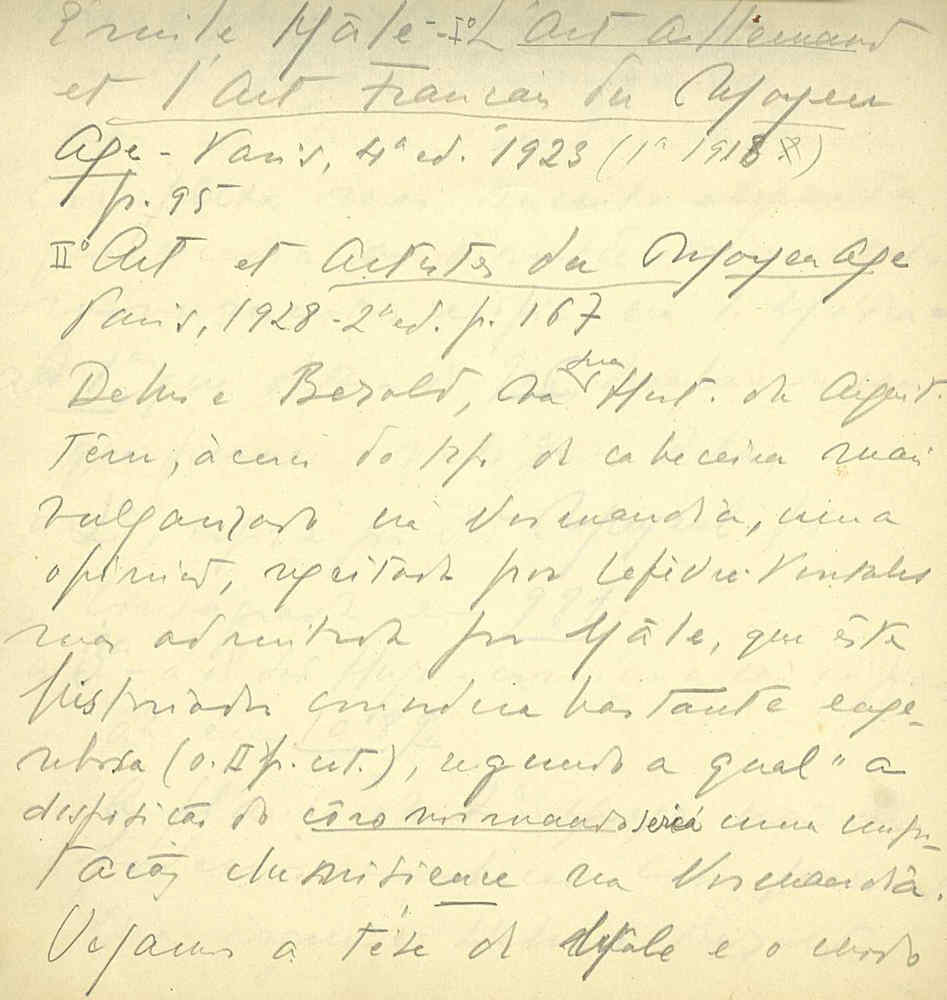 Émile Mâle - Iº L'Art Allemand
et l'Art Français du Moyen
Age - Paris, 4ª ed. 1923 (1ª 1918)
p. 95
IIº Art et Artistes du Moyen Age
Paris, 1928 - 2ª ed. p. 167
Dehio e Bezold, na sua Hist. da Arquit.
Têm, àcerca do tipo de cabeceira mais
vulgarizado na Normandia, uma
opinião, rejeitada por Lefèvre-Pontalis
mas admitida por Mâle, que êste
historiador considera bastante enge-
nhosa (o. II p. cit.), segundo a qual "a
disposição do côro normando seria uma impor-
tação clunisienne na Normandia.
Vejamos a tése de Mâle e o modo